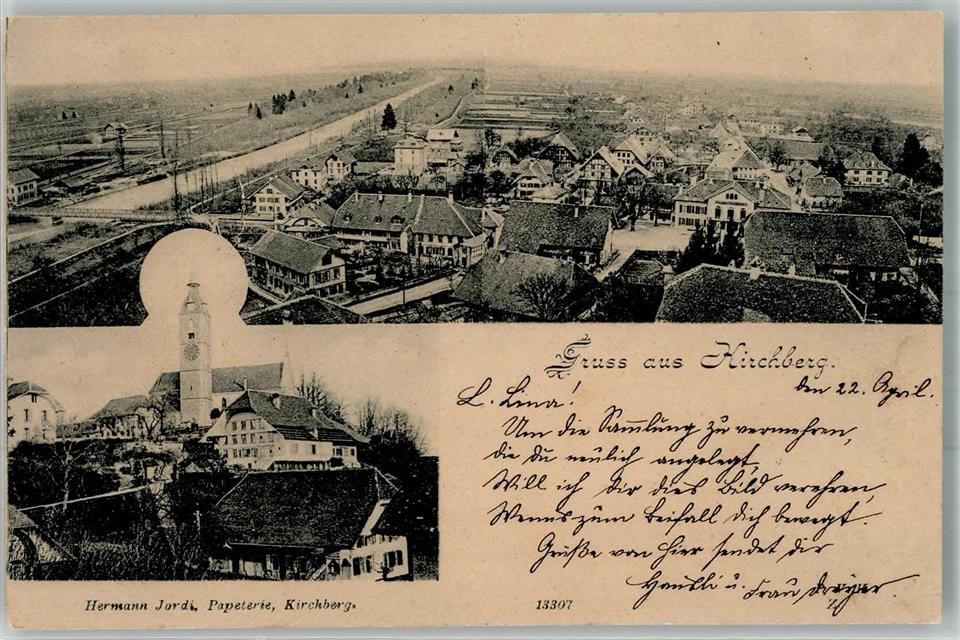 Gruss aus Kirchberg.
den 22. April.
L. Lina!
Um die Sammlung zu vermehren,
die du neulich angelegt,
Will ich dir dies Bild verehren,
Wenns zum Beifall dich bewegt.
Grüße von hier sendet dir
u. Frau Dreyer
Hermann Jordi, Papeterie, Kirchberg.
13307